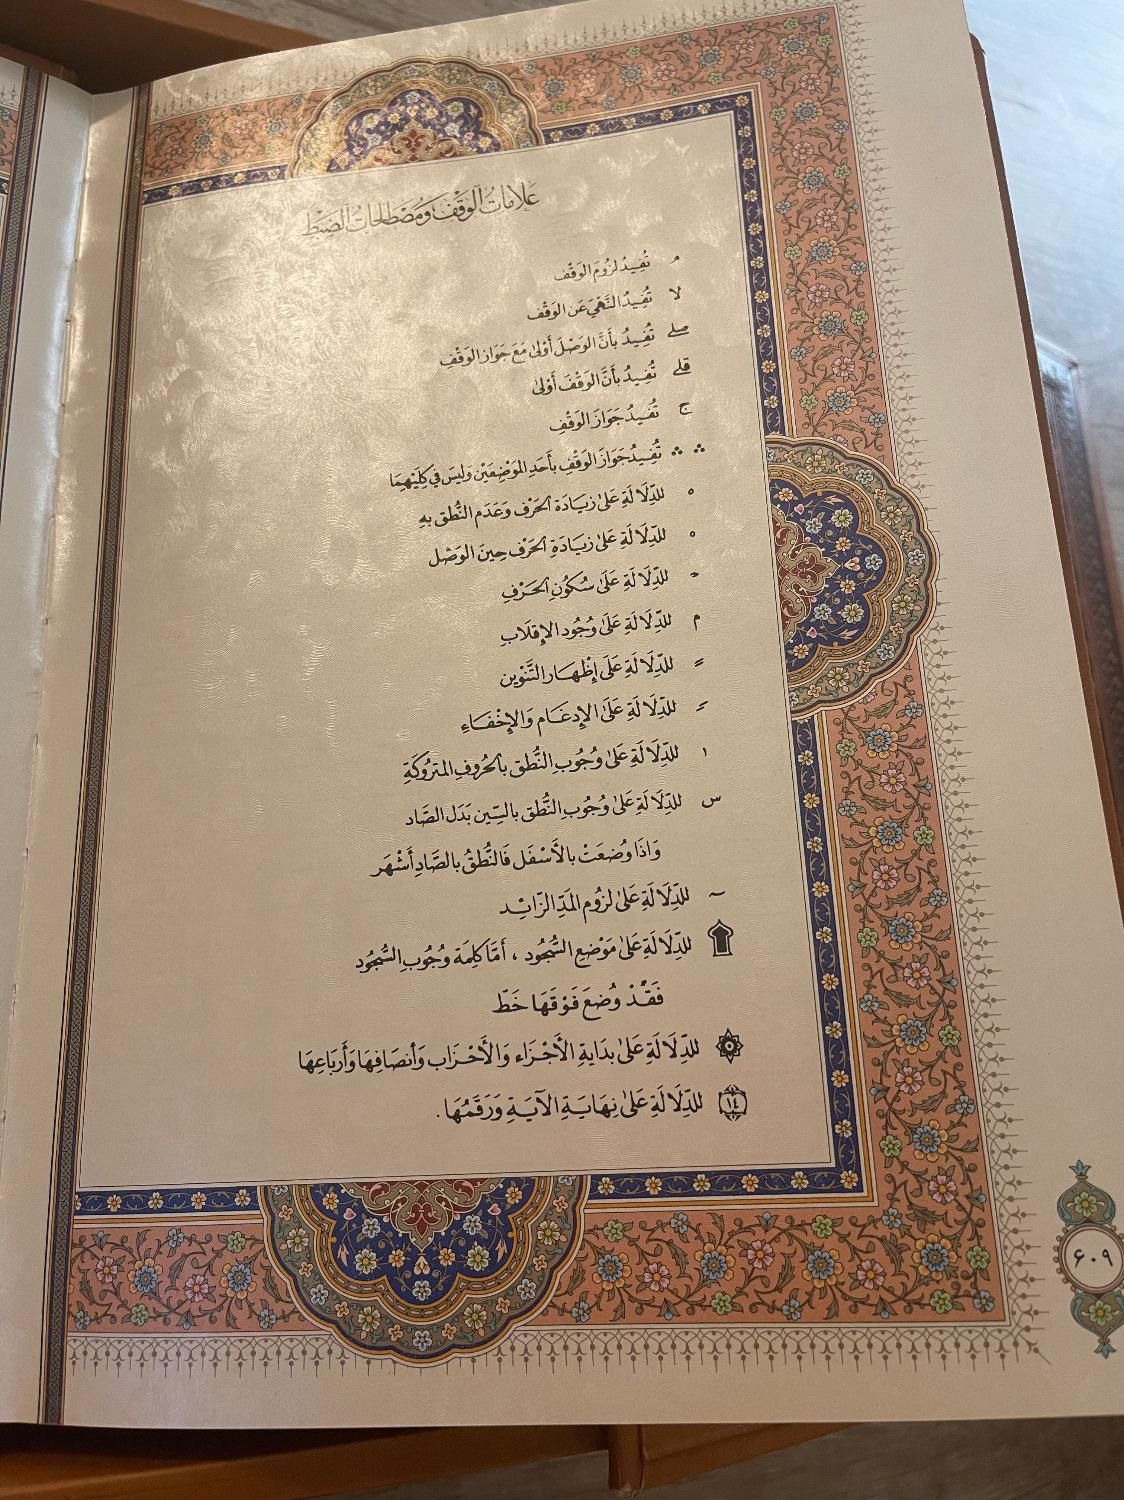 عَلَامَاتُ الوَقْفِ وَمُصْطَلَحَاتُ الضَّبْطِ
مـ تُفِيدُ لُزُومَ الوَقْفِ
لا تُفِيدُ النَّهْيَ عَنِ الوَقْفِ
صلے تُفِيدُ بِأَنَّ الوَصْلَ أَوْلىٰ مَعَ جَوَازِ الوَقْفِ
قلے تُفِيدُ بِأَنَّ الوَقْفَ أَوْلىٰ
ج تُفِيدُ جَوَازَ الوَقْفِ
∴ ∴ تُفِيدُ جَوَازَ الوَقْفِ بِأَحَدِ المَوْضِعَيْنِ وَلَيسَ فِي كِلَيْهِمَا
ه لِلدِّلَالَةِ عَلىٰ زِيَادَةِ الحَرْفِ وَعَدَمِ النُّطقِ بِهِ
ه لِلدِّلَالَةِ عَلىٰ زِيَادَةِ الحَرْفِ حِينَ الوَصْلِ
لِلدِّلَالَةِ عَلىٰ سُكُونِ الحَرْفِ
م لِلدِّلَالَةِ عَلىٰ وُجُودِ الإِقلَابِ
لِلدِّلَالَةِ عَلىٰ إِظْهَارِ التَّنْوِينِ
لِلدِّلَالَةِ عَلىٰ الإِدغَامِ وَالإِخْفَاءِ
ا لِلدِّلَالَةِ عَلىٰ وُجُوبِ النُّطقِ بِالحُرُوفِ المَتْرُوكَةِ
س لِلدِّلَالَةِ عَلىٰ وُجُوبِ النُّطقِ بِالسِّينِ بَدَلَ الصَّادِ
وَاذَا وُضِعَتْ بِالأَسْفَلِ فَالنُّطقُ بِالصَّادِ أَشْهَر
~ لِلدِّلَالَةِ عَلىٰ لُزُومِ المَدِّ الزَّائِدِ
لِلدِّلَالَةِ عَلىٰ مَوْضِعِ السُّجُودِ ، أَمَّا كَلِمَة وُجُوبِ السُّجُودِ
فَقَدْ وُضِعَ فَوْقَهَا خَطّ
لِلدِّلَالَةِ عَلىٰ بِدَايَةِ الأَجْزَاءِ وَالأَحْزَابِ وَأَنصَافِهَا وَأَربَاعِهَا
١٤ لِلدِّلَالَةِ عَلىٰ نِهَايَةِ الآيَةِ وَرَقَمُهَا.
۶۰۹